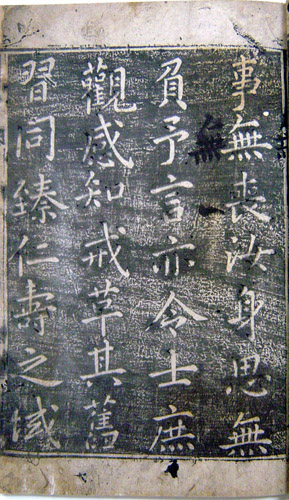 事無喪汝身思無
負予言亦令士庶
觀感知戒革其舊
習同臻仁壽之域